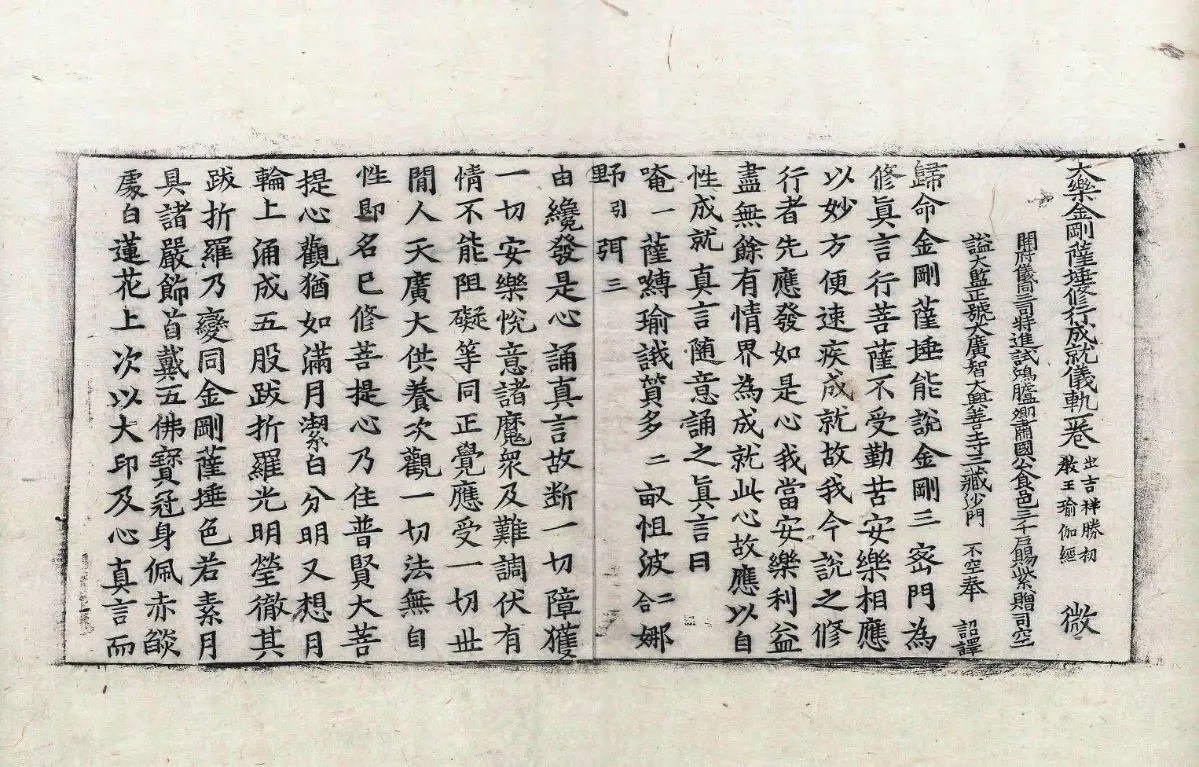 大樂金剛薩埵修行成就儀軌一卷 出吉祥勝初教王瑜伽經 微
開府儀同三司特進試鴻臚卿肅國公食邑三千戶賜紫贈司空
謚大監正號大廣智大興善寺三藏沙門 不空奉 詔譯
歸命金剛薩埵能說金剛三密門為
修真言行菩薩不受勤苦安樂相應
以妙方便速疾成就故我今說之修
行者先應發如是心我當安樂利益
盡無餘有情界為成就此心故應以自
性成就真言随意誦之真言曰
唵一薩嚩瑜誐質多二畝怛波二合娜
野引弭三
由纔發是心誦真言故断一切障獲
一切安樂悅意諸魔衆及難調伏有
情不能阻礙等同正覺應受一切世
閒人天廣大供養次觀一切法無自
性即名已修菩提心乃住普賢大菩
提心觀猶如滿月潔白分明又想月
輪上涌成五股跋折羅光明瑩徹其
跋折羅乃變同金剛薩埵色若素月
具諸嚴飾首戴五佛寶冠身佩赤燄
處白蓮花上次以大印及心真言而